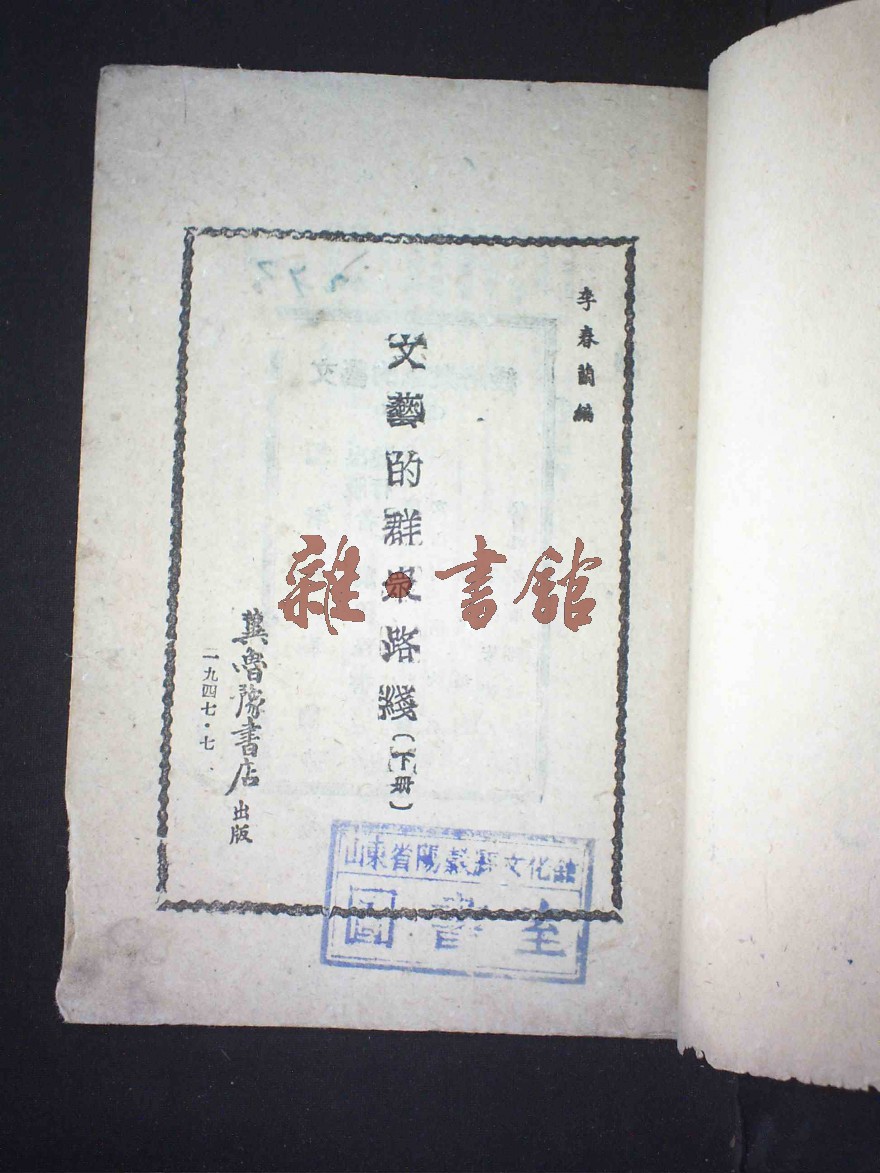 李春蘭編
文藝的群眾路綫（下册）
冀魯豫書店出版
一九四七·七
雜·書舘
山東省陽穀縣文化舘
圖書室